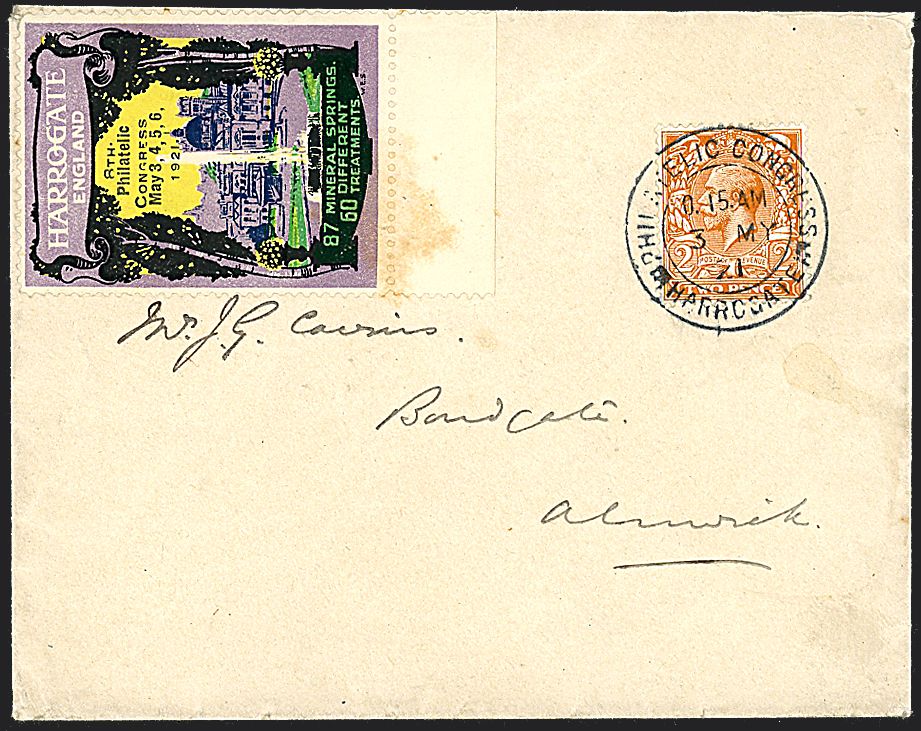 HARROGATE
ENGLAND
8TH.
Philatelic
CONGRESS
May 3, 4, 5, 6,
1921.
87 MINERAL SPRINGS.
60 DIFFERENT
TREATMENTS.
PHILATELIC CONGRESS
0.15 AM
3 MY
21
HARROGATE
POSTAGE REVENUE
TWO PENCE
Mr. J. G.
Bondgate.
Alnwick.